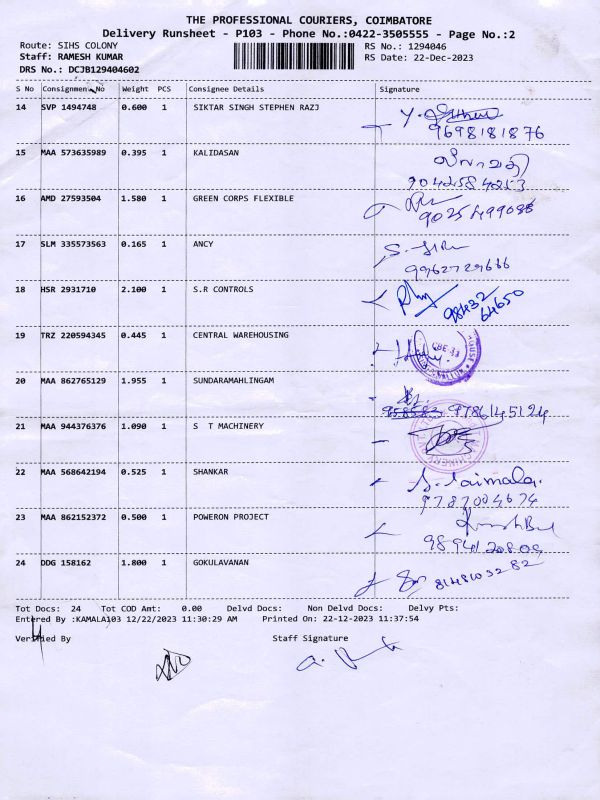 THE PROFESSIONAL COURIERS, COIMBATORE
Delivery Runsheet - P103 - Phone No.:0422-3505555 - Page No.:2
Route: SIHS COLONY RS No.: 1294046
Staff: RAMESH KUMAR RS Date: 22-Dec-2023
DRS No.: DCJB129404602
S No Consignment No Weight PCS Consignee Details Signature
14 SVP 1494748 0.600 1 SIKTAR SINGH STEPHEN RAZJ
9698181876
15 MAA 573635989 0.395 1 KALIDASAN
9042584253
16 AMD 27593504 1.580 1 GREEN CORPS FLEXIBLE
17 SLM 335573563 0.165 1 ANCY
9962729666
18 HSR 2931710 2.100 1 S.R CONTROLS
98432
64650
19 TRZ 220594345 0.445 1 CENTRAL WAREHOUSING
20 MAA 862765129 1.955 1 SUNDARAMAHLINGAM
9786145124
21 MAA 944376376 1.090 1 S T MACHINERY
22 MAA 568642194 0.525 1 SHANKAR
S. Saimala.
9787004674
23 MAA 862152372 0.500 1 POWERON PROJECT
9894120809
24 DDG 158162 1.800 1 GOKULAVANAN
8148103282
Tot Docs: 24 Tot COD Amt: 0.00 Delvd Docs: Non Delvd Docs: Delvy Pts:
Entered By :KAMALA103 12/22/2023 11:30:29 AM Printed On: 22-12-2023 11:37:54
Verified By Staff Signature